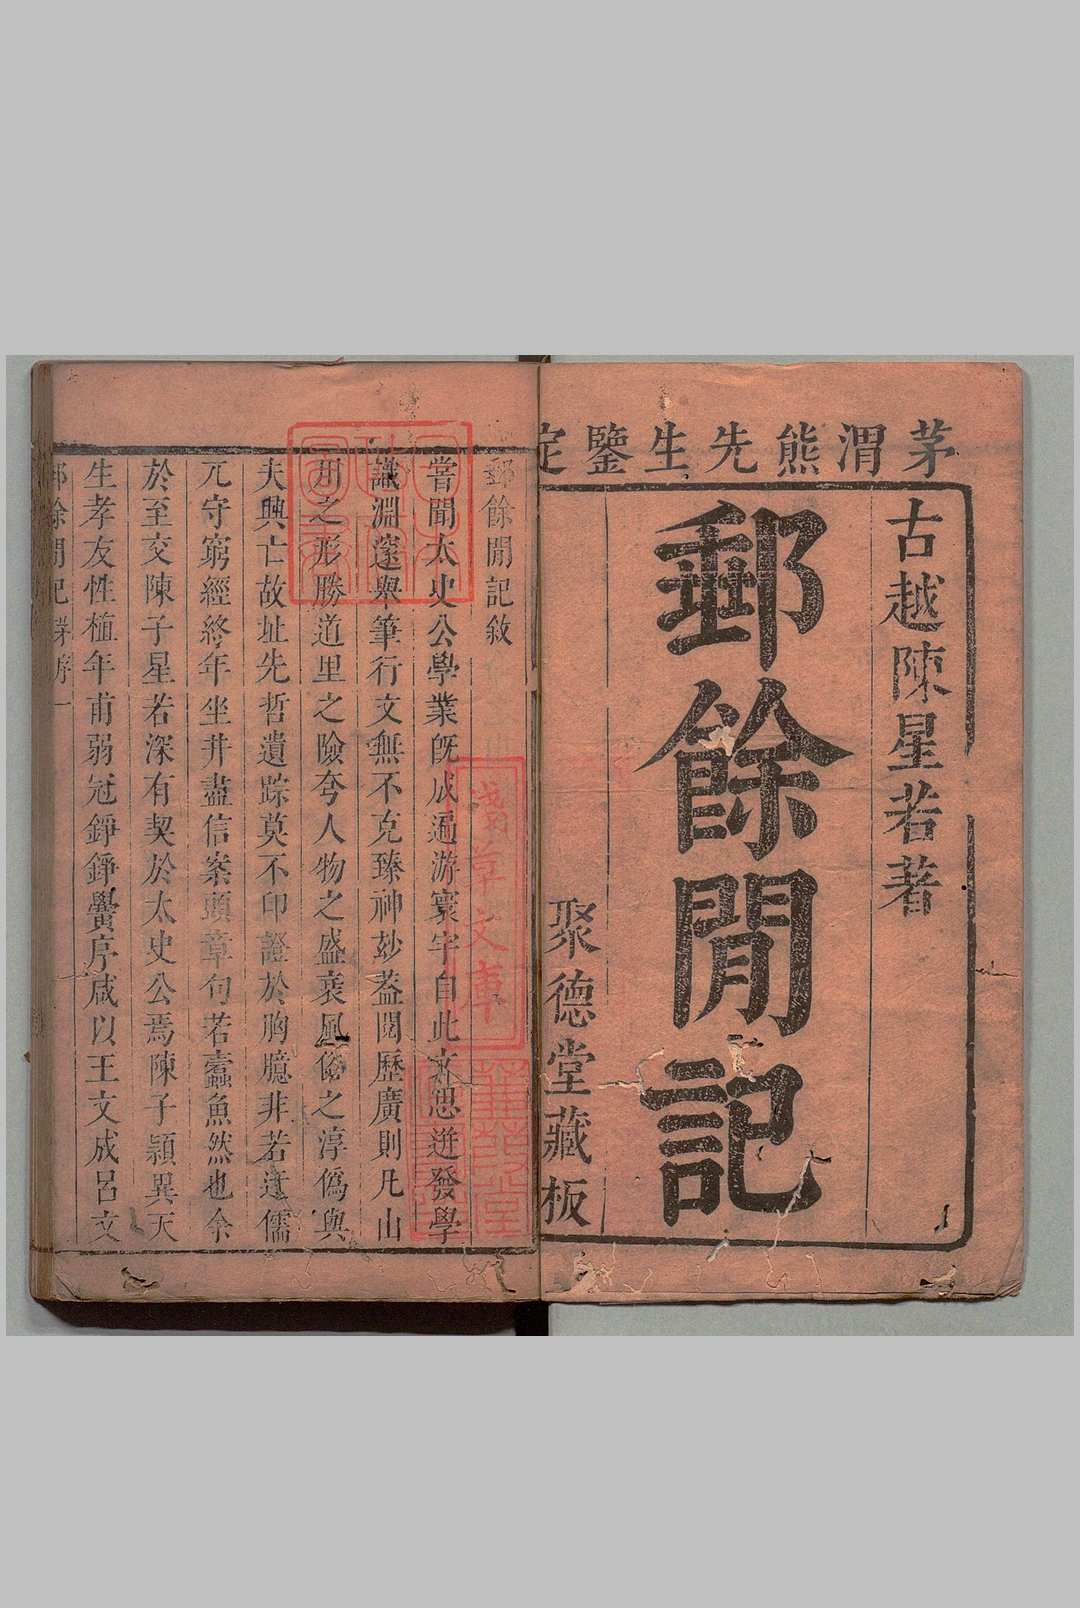 茅渭熊先生鑒定
古越陳星若著
郵餘閒記
聚德堂藏板
郵餘閒記敘
嘗聞太史公學業旣成遍游寰宇自此文思迸發學
識淵邃舉筆行文無不克臻神妙蓋閱歷廣則凡山
川之形勝道里之險夸人物之盛衰風俗之淳僞與
夫興亡故址先哲遺踪莫不印證於胸臆非若迂儒
兀守窮經終年坐井盡信案頭章句若蠹魚然也余
於至交陳子星若深有契於太史公焉陳子穎異天
生孝友性植年甫弱冠錚錚黌序咸以王文成呂文
郵餘閒記 茅序 一
淺草文庫